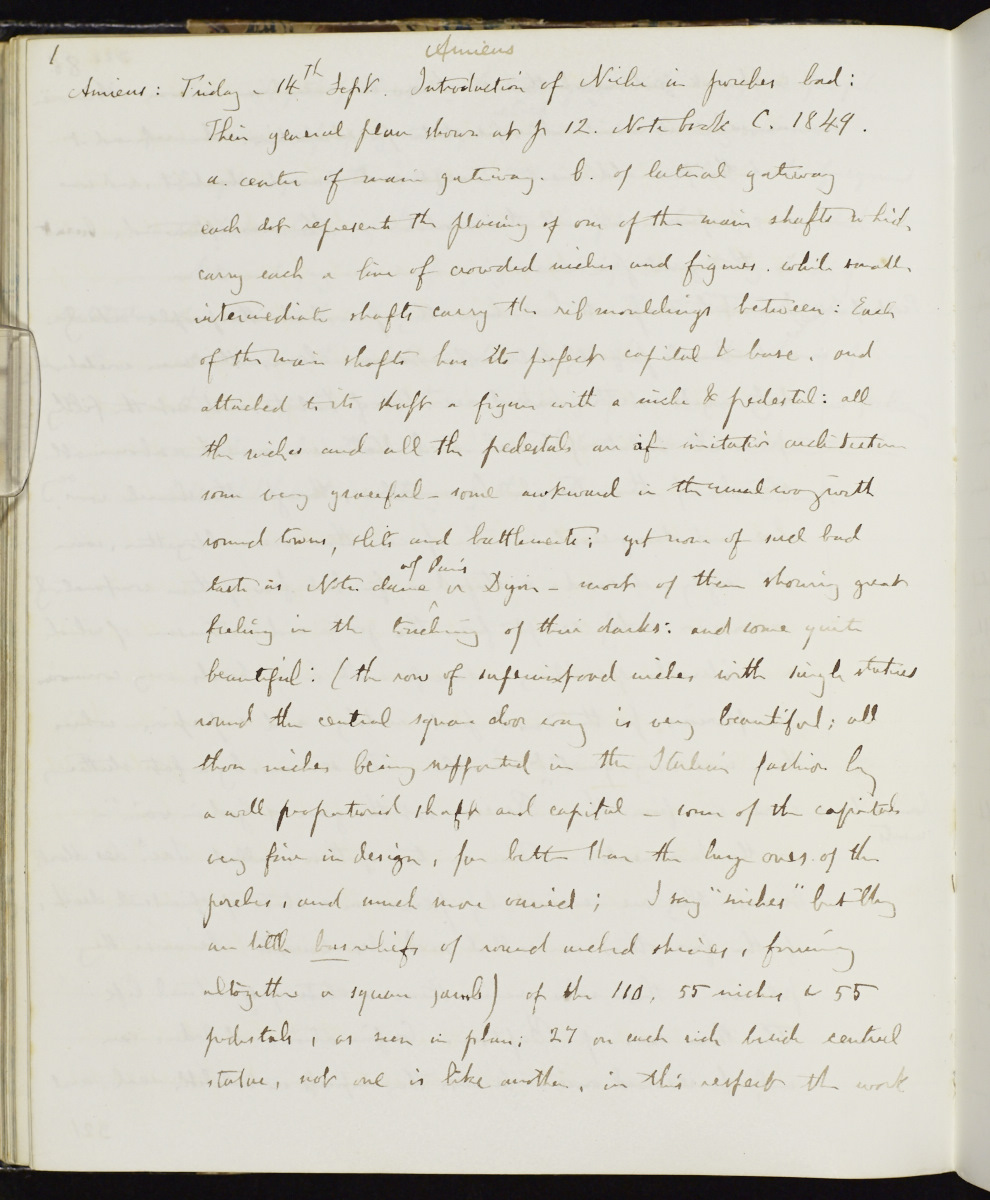 1
Amiens
Amiens: Friday - 14th Sept. Introduction of Niche in porches bad:
Their general plan shown at p 12. Note book C. 1849.
a. center of main gateway. b. of lateral gateway
each dot represents the placing of one of the main shafts which
carry each a line of crowded niches and figures. while smaller
intermediate shafts carry the rib mouldings between: Each
of the main shafts has its perfect capital & base. and
attached to its shaft a figure with a niche & pedestal: all
the niches and all the pedestals are of imitation architecture
some very graceful - some awkward in the usual way with
round towers, slits and battlements; yet none of such bad
taste as Notre dame of Paris or Dijon - most of them showing great
feeling in the touching of their darks: and some quite
beautiful: (the row of superimposed niches with single statues
round the central square door way is very beautiful; all
those niches being supported in the Italian fashion by
a well proportioned shaft and capital - some of the capitals
very fine in design, far better than the large ones of the
porches, and much more varied; I say "niches" but they
are little bas reliefs of round arched shrines, forming
altogether a square jamb) of the 110. 55 niches & 55
pedestals, as seen in plan; 27 on each side beside central
statue, not one is like another, in this respect the work